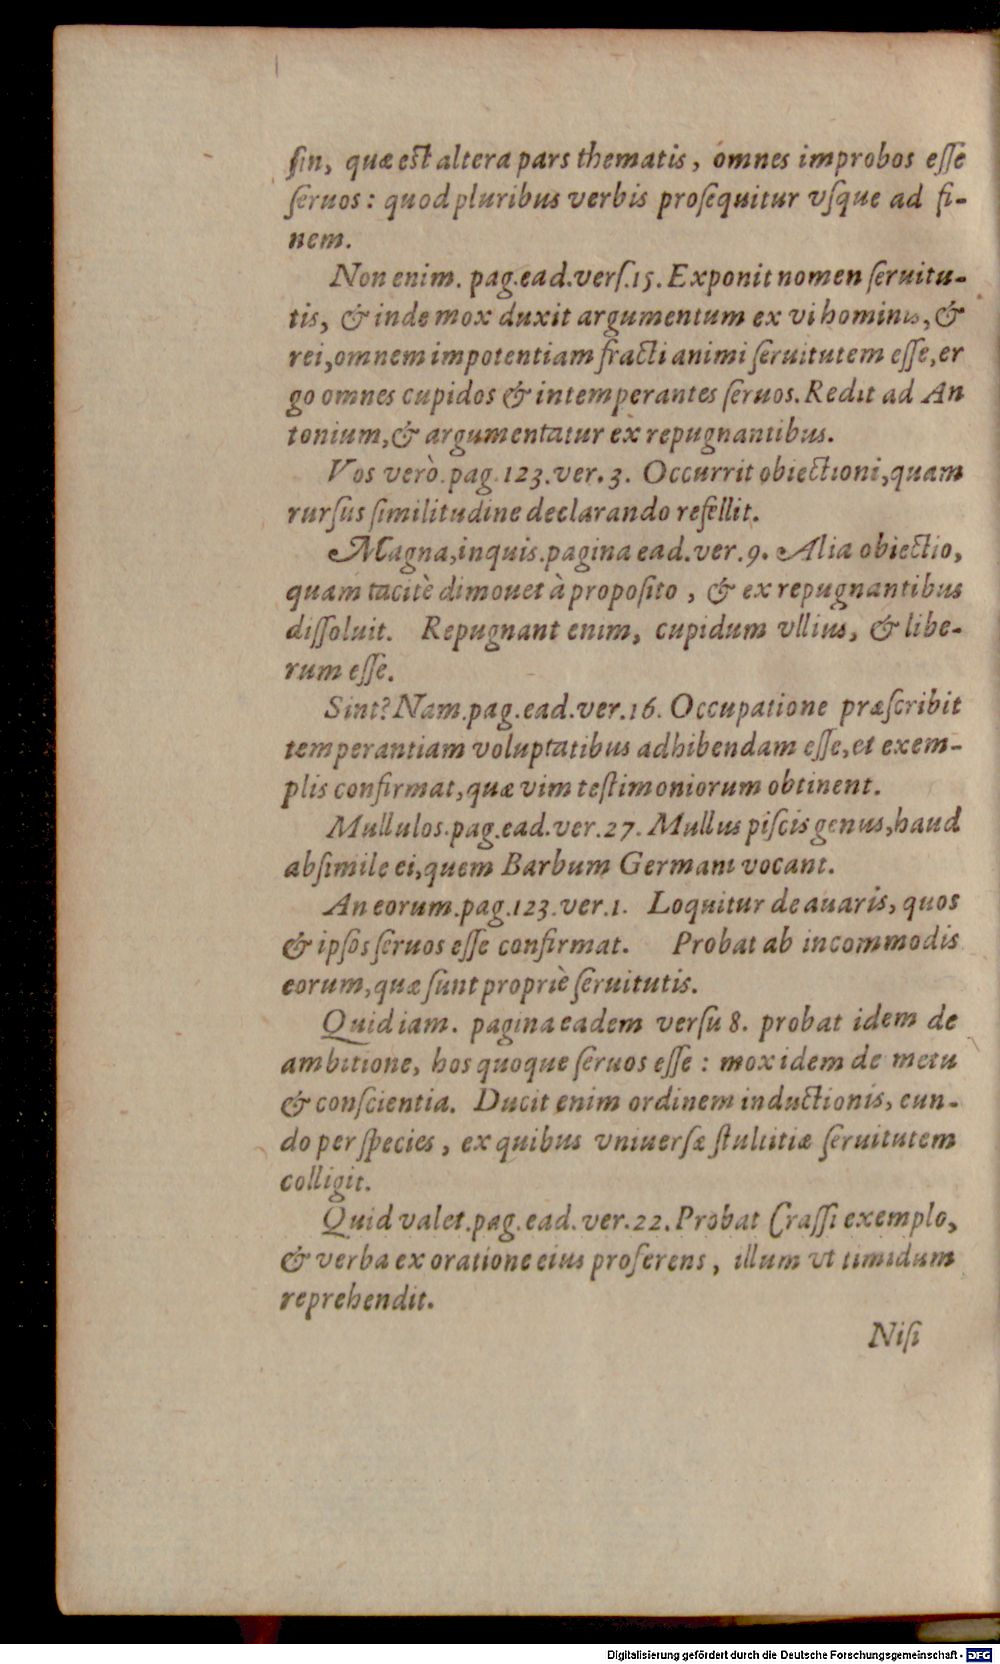 ſin, quæ est altera pars thematis, omnes improbos eſſe
ſeruos: quod pluribus verbis proſequitur vſque ad fi-
nem.
Non enim. pag.ead.verſ.15. Exponit nomen ſeruitu-
tis, & inde mox duxit argumentum ex vi hominis, &
rei, omnem impotentiam fracti animi ſeruitutem eſſe, er
go omnes cupidos & intemperantes ſeruos. Redit ad An
tonium, & argumentatur ex repugnantibus.
Vos verò. pag. 123. ver. 3. Occurrit obiectioni, quam
rurſus ſimilitudine declarando refellit.
Magna, inquis. pagina ead. ver. 9. Alia obiectio,
quam tacitè dimouet à propoſito, & ex repugnantibus
diſſoluit. Repugnant enim, cupidum vllius, & libe-
rum eſſe.
Sint? Nam. pag. ead. ver. 16. Occupatione præſcribit
temperantiam voluptatibus adhibendam eſſe, et exem-
plis confirmat, quæ vim teſtimoniorum obtinent.
Mullulos. pag. ead. ver. 27. Mullus piſcis genus, haud
abſimile ei, quem Barbum Germani vocant.
An eorum. pag. 123. ver. 1. Loquitur de auaris, quos
& ipſos ſeruos eſſe confirmat. Probat ab incommodis
eorum, quæ ſunt propriè ſeruitutis.
Quid iam. pagina eadem verſu 8. probat idem de
ambitione, hos quoque ſeruos eſſe: mox idem de metu
& conſcientia. Ducit enim ordinem inductionis, eun-
do per ſpecies, ex quibus vniuerſæ ſtultitiæ ſeruitutem
colligit.
Quid valet. pag. ead. ver. 22. Probat Craſſi exemplo,
& verba ex oratione eius proferens, illum vt timidum
reprehendit.
Niſi
Digitalisierung gefördert durch die Deutsche Forschungsgemeinschaft - DFG